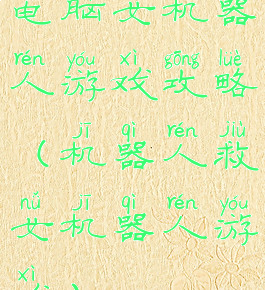 电脑女机器
rén yóu xì gōng lüè
人游戏攻略
jī qì rén jiù
（机器人救
nǚ jī qì rén yóu
女机器人游
xì